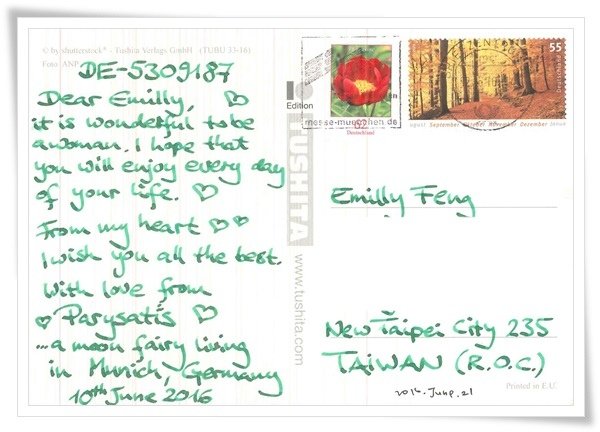 © by shutterstock® - Tushita Verlags GmbH (TUBU 33-16)
Foto ANP
DE-5309187
Dear Emilly, ♡
it is wonderful to be
a woman. I hope that
you will enjoy every day
of your life. ♡
From my heart ♡♡
I wish you all the best.
With love from
♡ Parysatis ♡
...a moon fairy living
in Munich, Germany
10th June 2016
Edition
TUSHITA
www.tushita.com
messe-muenchen.de
Deutschland
55
Deutschland
August September Oktober November Dezember Januar
Emilly Feng
New Taipei City 235
TAIWAN (R.O.C.)
2016. June. 21
Printed in E.U.